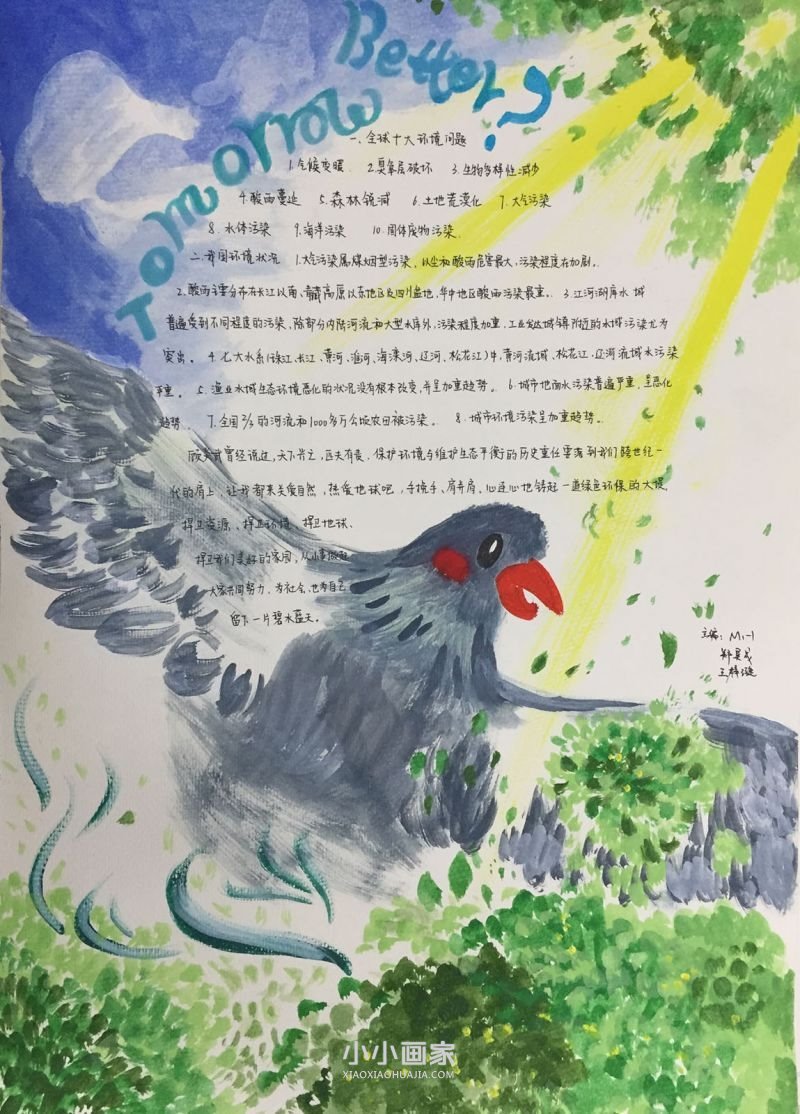 Better?
Tomorrow
一、全球十大环境问题
1.气候变暖 2.臭氧层破坏 3.生物多样性减少
4.酸雨蔓延 5.森林锐减 6.土地荒漠化 7.大气污染
8.水体污染 9.海洋污染 10.固体废物污染.
二、我国环境状况 1.大气污染属煤烟型污染,以尘和酸雨危害最大,污染程度在加剧.
2.酸雨主要分布在长江以南、青藏高原以东地区及四川盆地,华中地区酸雨污染最重. 3.江河湖库水域
普遍受到不同程度的污染,除部分内陆河流和大型水库外,污染程度加重,工业发达城镇附近的水域污染尤为
突出. 4.七大水系(珠江、长江、黄河、淮河、海滦河、辽河、松花江)中,黄河流域、松花江、辽河流域水污染
严重. 5.渔业水域生态环境恶化的状况没有根本改变,并呈加重趋势. 6.城市地面水污染普遍严重,呈恶化
趋势. 7.全国2/3的河流和1000多万公顷农田被污染. 8.城市环境污染呈加重趋势.
顾炎武曾经说过,天下兴亡,匹夫有责.保护环境与维护生态平衡的历史重任要落到我们跨世纪一
代的肩上,让我们都来关爱自然,热爱地球吧,手挽手、肩并肩、心连心地铸起一道绿色环保的大堤,
捍卫资源、捍卫环境、捍卫地球、
捍卫我们美好的家园,从小事做起
大家共同努力,为社会,也为自己
留下一片碧水蓝天.
主编:M1-1
王梓璇
小小画家
XIAOXIAOHUAJIA.COM